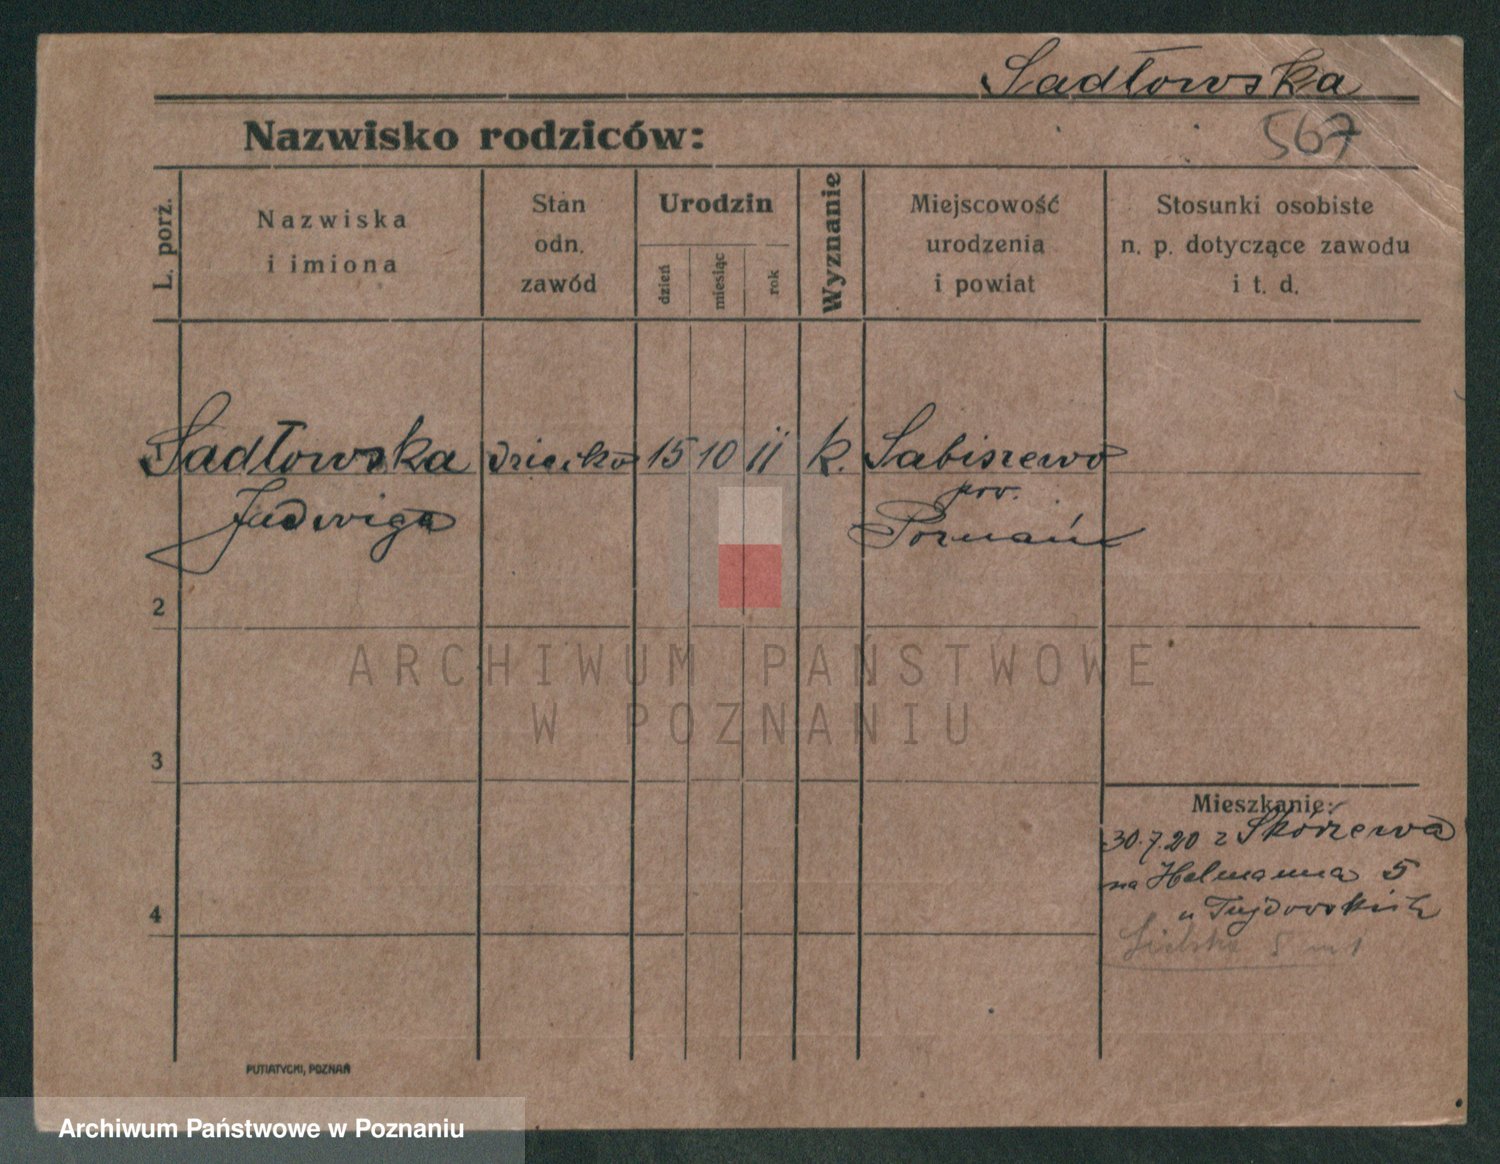 Sadłowska
567
Nazwisko rodziców:
L. porz.
Nazwiska
i imiona
Stan
odn.
zawód
Urodzin
dzień
miesiąc
rok
Wyznanie
Miejscowość
urodzenia
i powiat
Stosunki osobiste
n. p. dotyczące zawodu
i t. d.
Sadłowska dziecko 15 10 11 k. Sabiszewo
pow.
Jadwiga Poznań
2
3
4
Mieszkanie:
30.7.20 z Skórzewa
na Helmanna 5
u
5 m 1
PUTIATYCKI, POZNAŃ
ARCHIWUM PAŃSTWOWE
W POZNANIU
Archiwum Państwowe w Poznaniu